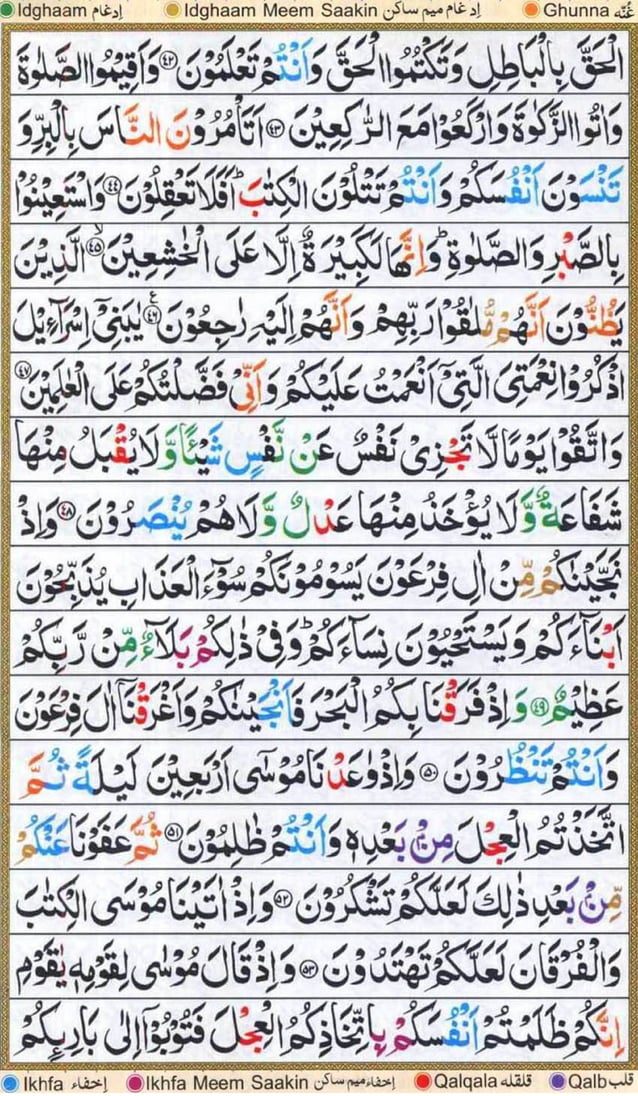 Idghaam ادغام Idghaam Meem Saakin ادغام میم ساکن Ghunna غُنّه
الْحَقَّ بِالْبَاطِلِ وَتَكْتُمُوا الْحَقَّ وَاَنْتُمْ تَعْلَمُوْنَ ﴿۴۲﴾ وَاَقِيْمُوا الصَّلٰوةَ
وَاٰتُوا الزَّكٰوةَ وَارْكَعُوْا مَعَ الرّٰكِعِيْنَ ﴿۴۳﴾ اَتَاْمُرُوْنَ النَّاسَ بِالْبِرِّ وَ
تَنْسَوْنَ اَنْفُسَكُمْ وَاَنْتُمْ تَتْلُوْنَ الْكِتٰبَ ؕ اَفَلَا تَعْقِلُوْنَ ﴿۴۴﴾ وَاسْتَعِيْنُوْا
بِالصَّبْرِ وَالصَّلٰوةِ ؕ وَاِنَّهَا لَكَبِيْرَةٌ اِلَّا عَلَى الْخٰشِعِيْنَ ﴿۴۵﴾ۙ الَّذِيْنَ
يَظُنُّوْنَ اَنَّهُمْ مُّلٰقُوْا رَبِّهِمْ وَاَنَّهُمْ اِلَيْهِ رٰجِعُوْنَ ﴿۴۶﴾ۧ يٰبَنِيْٓ اِسْرَآءِيْلَ
اذْكُرُوْا نِعْمَتِيَ الَّتِيْٓ اَنْعَمْتُ عَلَيْكُمْ وَاَنِّيْ فَضَّلْتُكُمْ عَلَى الْعٰلَمِيْنَ ﴿۴۷﴾
وَاتَّقُوْا يَوْمًا لَّا تَجْزِيْ نَفْسٌ عَنْ نَّفْسٍ شَيْـًٔا وَّلَا يُقْبَلُ مِنْهَا
شَفَاعَةٌ وَّلَا يُؤْخَذُ مِنْهَا عَدْلٌ وَّلَا هُمْ يُنْصَرُوْنَ ﴿۴۸﴾ وَاِذْ
نَجَّيْنٰكُمْ مِّنْ اٰلِ فِرْعَوْنَ يَسُوْمُوْنَكُمْ سُوْٓءَ الْعَذَابِ يُذَبِّحُوْنَ
اَبْنَآءَكُمْ وَيَسْتَحْيُوْنَ نِسَآءَكُمْ ؕ وَفِيْ ذٰلِكُمْ بَلَآءٌ مِّنْ رَّبِّكُمْ
عَظِيْمٌ ﴿۴۹﴾ وَاِذْ فَرَقْنَا بِكُمُ الْبَحْرَ فَاَنْجَيْنٰكُمْ وَاَغْرَقْنَآ اٰلَ فِرْعَوْنَ
وَاَنْتُمْ تَنْظُرُوْنَ ﴿۵۰﴾ وَاِذْ وٰعَدْنَا مُوْسٰٓى اَرْبَعِيْنَ لَيْلَةً ثُمَّ
اتَّخَذْتُمُ الْعِجْلَ مِنْۢ بَعْدِهٖ وَاَنْتُمْ ظٰلِمُوْنَ ﴿۵۱﴾ ثُمَّ عَفَوْنَا عَنْكُمْ
مِّنْۢ بَعْدِ ذٰلِكَ لَعَلَّكُمْ تَشْكُرُوْنَ ﴿۵۲﴾ وَاِذْ اٰتَيْنَا مُوْسَى الْكِتٰبَ
وَالْفُرْقَانَ لَعَلَّكُمْ تَهْتَدُوْنَ ﴿۵۳﴾ وَاِذْ قَالَ مُوْسٰى لِقَوْمِهٖ يٰقَوْمِ
اِنَّكُمْ ظَلَمْتُمْ اَنْفُسَكُمْ بِاتِّخَاذِكُمُ الْعِجْلَ فَتُوْبُوْٓا اِلٰى بَارِئِكُمْ
Ikhfa إخفاء Ikhfa Meem Saakin إخفاء میم ساکن Qalqala قلقله Qalb قلب